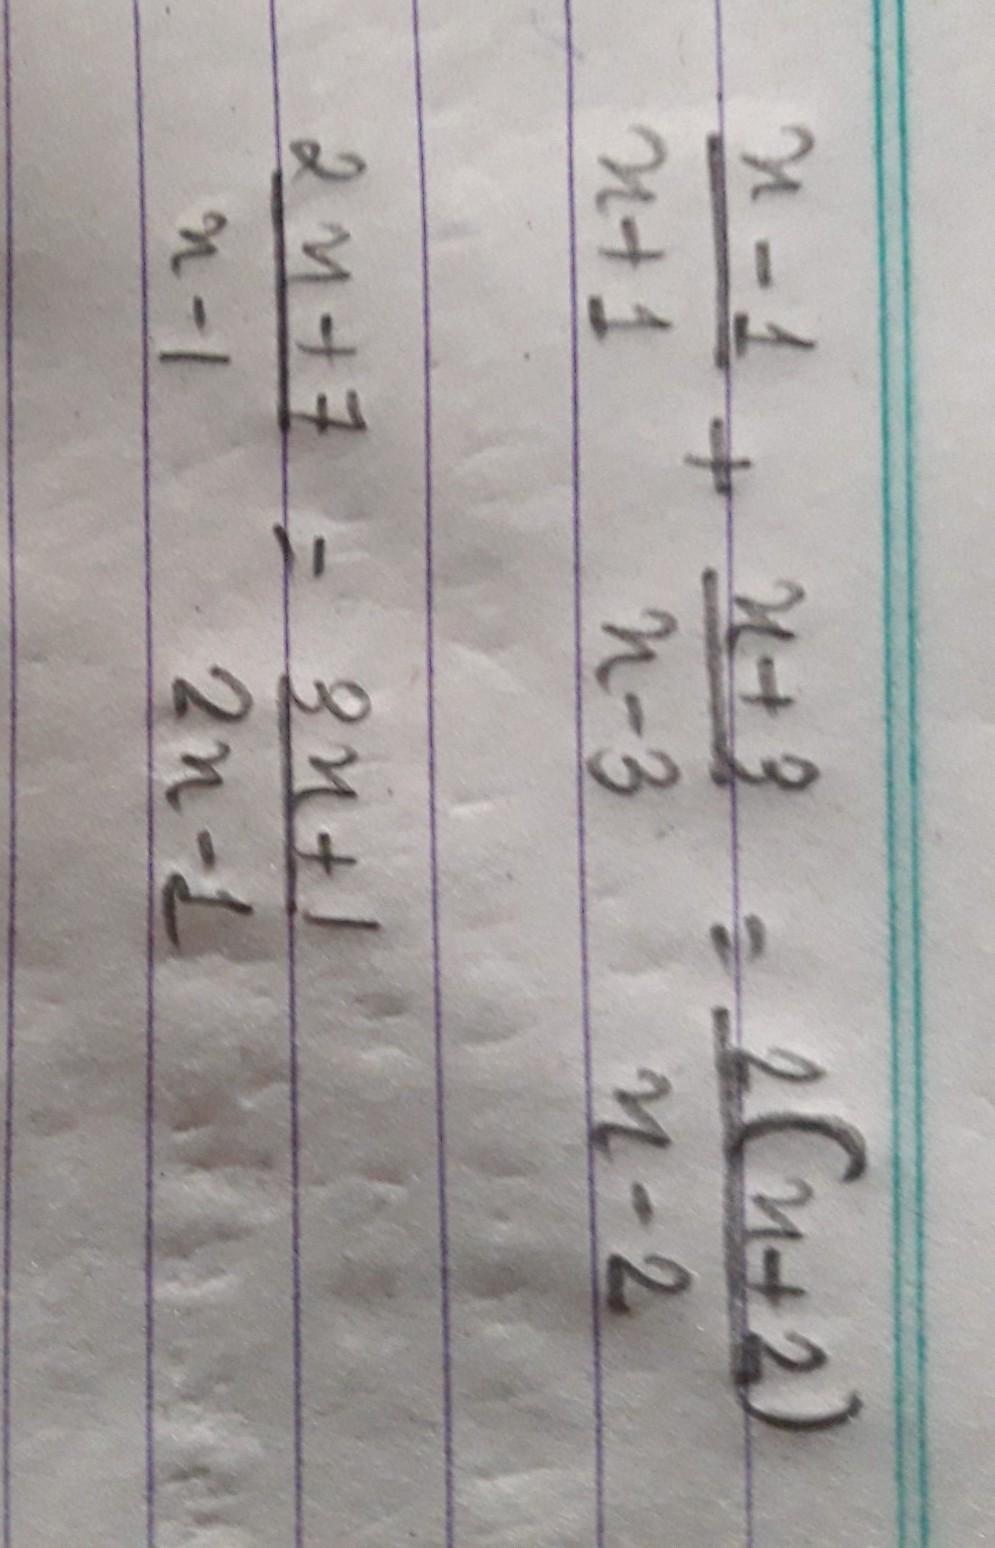 x-1/x+1 + x+3/x-3 = 2(x+2)/x-2
2x+7/x-1 = 3x+1/2x-1